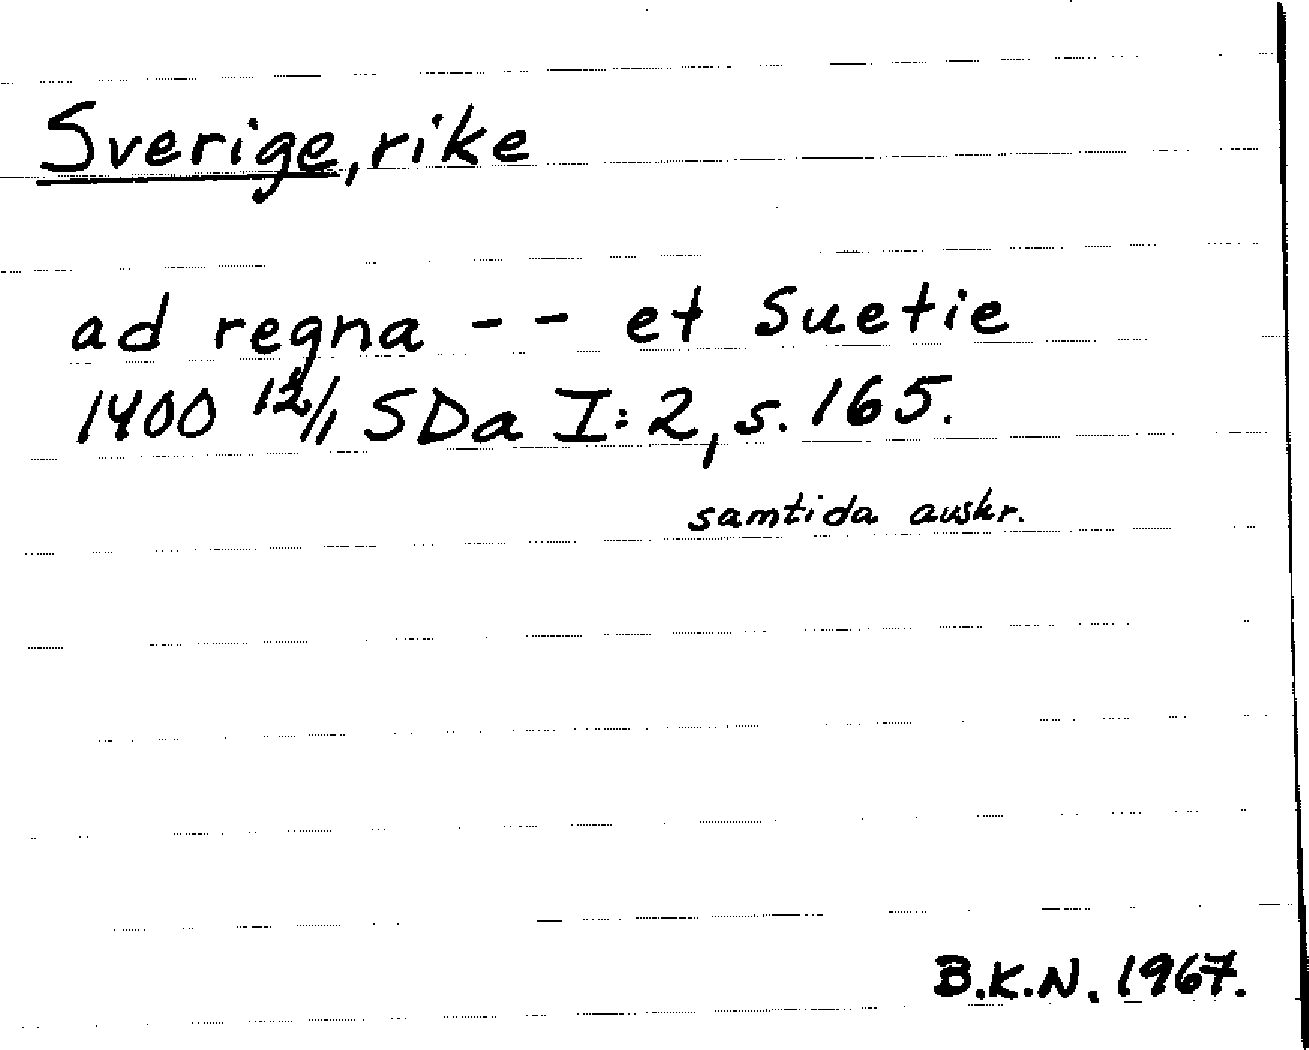 Sverige, rike
ad regna -- et Suetie
1400 12/11 SDa I:2, s. 165.
samtida avskr.
B.K.N. 1967.